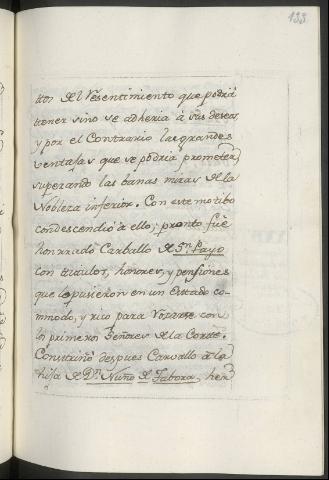 133
tos del resentimiento que podria
tener sino se adheria à sus deseos
y por el Contrario las grandes
ventajas que se podria prometer,
superando las banas miras de la
Nobleza inferior. Con este motibo
condescendiò à ello; pronto fuè
honrrado Carballo de Sn. Payo
con titulos, honores, y pensiones
que le pusieron en un Estado co-
modo, y rico para rozarse con
los primeros Señores de la Corte.
Constriñò despues Carvallo à la
hija de Dn. Nuño de Tabora, her